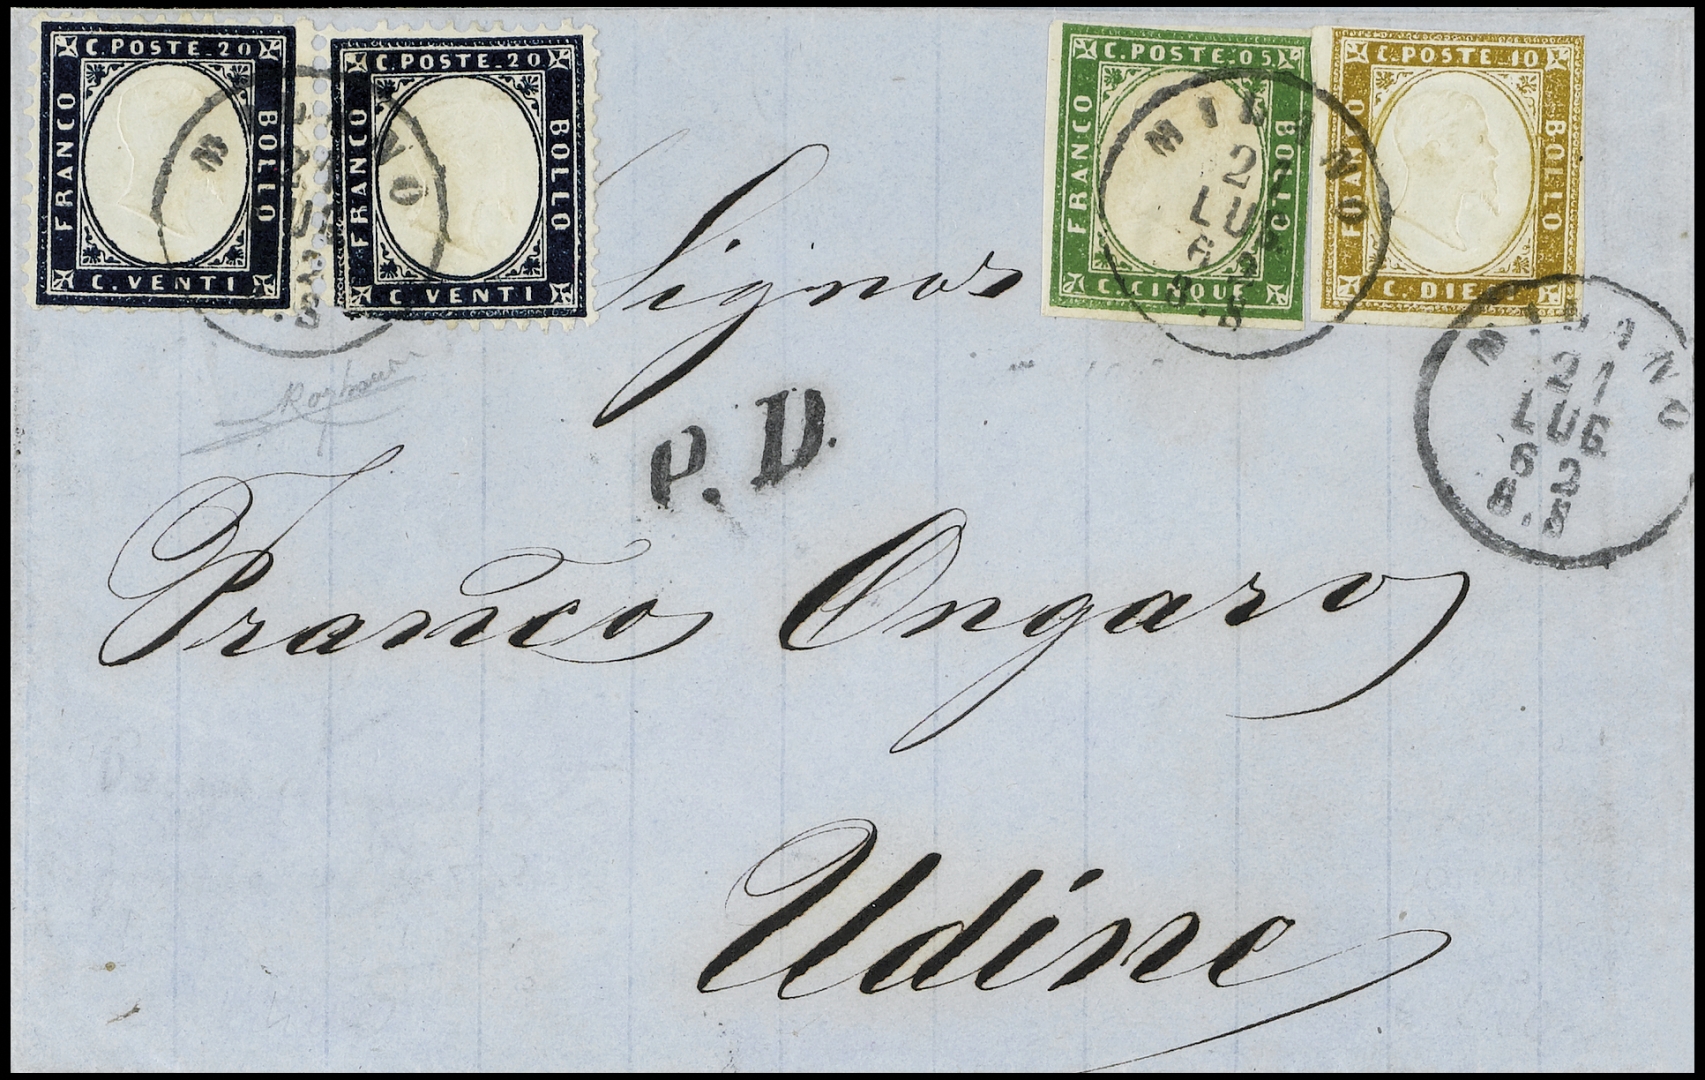 C. POSTE. 20
FRANCO
BOLLO
C. VENTI
C. POSTE. 20
FRANCO
BOLLO
C. VENTI
C. POSTE. 05
FRANCO
BOLLO
C. CINQUE
C. POSTE. 10
FRANCO
BOLLO
C. DIECI
MILANO
21
LUG
MILANO
21
LUG
62
MILANO
21
LUG
62
Signor
P. D.
Franco Ongaro
Udine